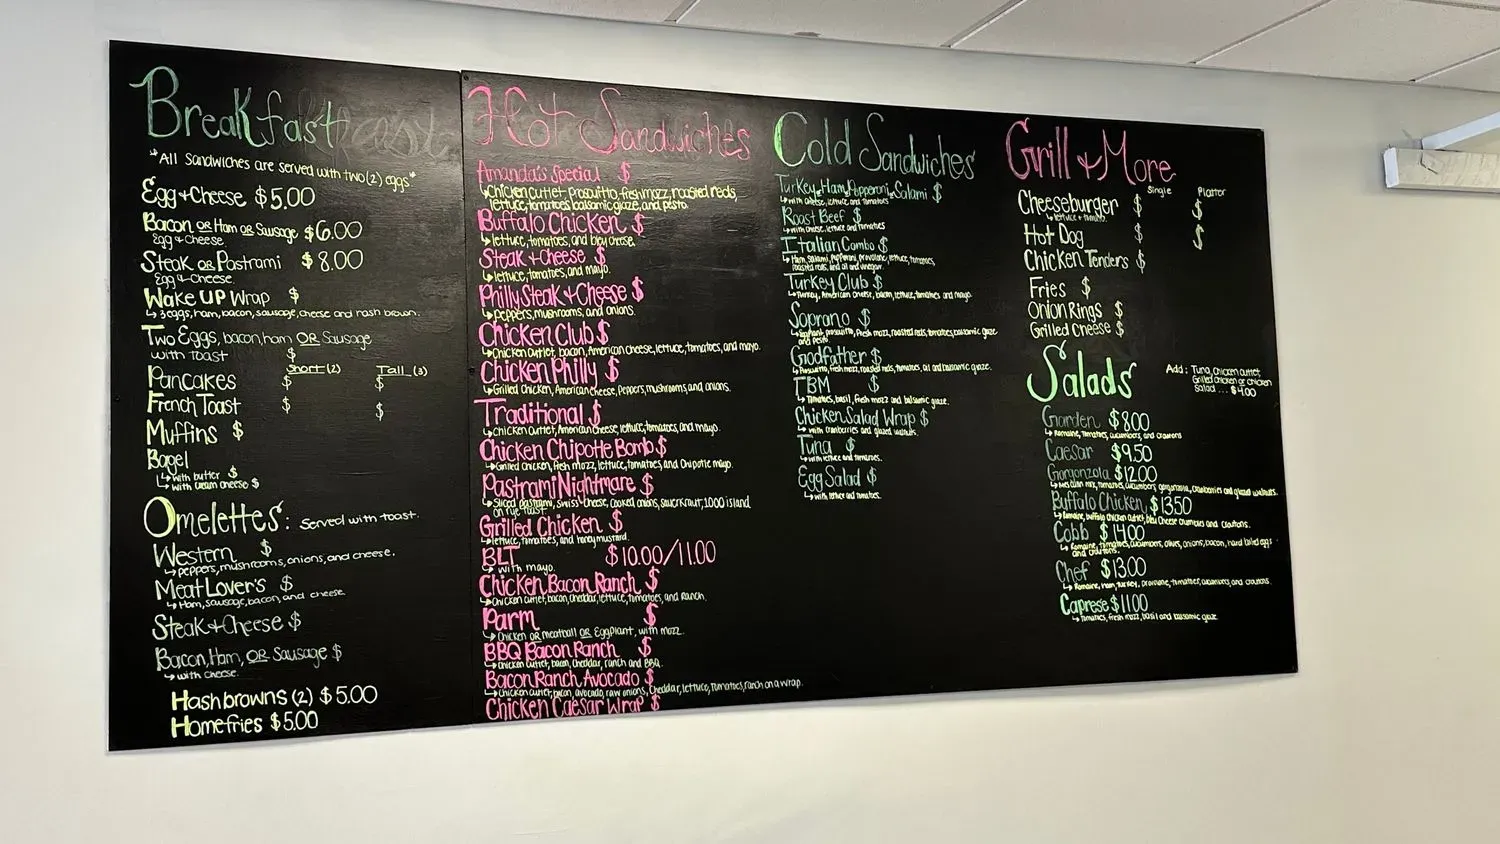 Breakfast
*All Sandwiches are served with two (2) eggs*
Egg + Cheese $5.00
Bacon OR Ham OR Sausage $6.00
Egg & Cheese.
Steak OR Pastrami $8.00
Egg & Cheese.
Wake UP Wrap $
↳ 3 eggs, ham, bacon, sausage, cheese and hash brown.
Two Eggs, bacon, ham OR Sausage
with Toast $
Short (2) Tall (3)
Pancakes $ $
French Toast $ $
Muffins $
Bagel
↳ with butter $
↳ with cream cheese $
Omelettes: Served with toast.
Western $
↳ peppers, mushrooms, onions, and cheese.
Meat Lover's $
↳ Ham, sausage, bacon, and cheese
Steak + Cheese $
Bacon, Ham, OR Sausage $
↳ with cheese.
Hashbrowns (2) $5.00
Homefries $5.00
Hot Sandwiches
Amanda's Special $
↳ Chicken Cutlet, prosuitto, fresh mozz, roasted reds,
lettuce, tomatoes, balsamic glaze, and pesto.
Buffalo Chicken $
↳ lettuce, tomatoes, and bleu cheese.
Steak + Cheese $
↳ lettuce, tomatoes, and mayo.
Philly Steak + Cheese $
↳ peppers, mushrooms, and onions.
Chicken Club $
↳ Chicken cutlet, bacon, American cheese, lettuce, tomatoes, and mayo.
Chicken Philly $
↳ Grilled Chicken, American cheese, Peppers, mushrooms and onions.
Traditional $
↳ Chicken cutlet, American cheese, lettuce, tomatoes, and mayo.
Chicken Chipotle Bomb $
↳ Grilled Chicken, fresh mozz, lettuce, tomatoes, and Chipotle mayo.
Pastrami Nightmare $
↳ Sliced pastrami, Swiss Cheese, cooked onions, sauerkraut, 1,000 island
on rye toast
Grilled Chicken $
↳ lettuce, tomatoes, and honey mustard.
BLT $10.00/11.00
↳ with mayo.
Chicken Bacon Ranch $
↳ Chicken cutlet, bacon, cheddar, lettuce, tomatoes, and ranch.
Parm $
↳ Chicken OR meatball OR Eggplant, with mozz.
BBQ Bacon Ranch $
↳ Chicken cutlet, bacon, cheddar, ranch and BBQ.
Bacon Ranch Avocado $
↳ Chicken cutlet, bacon, avocado, raw onions, cheddar, lettuce, tomatoes, ranch on a wrap.
Chicken Caesar Wrap $
Cold Sandwiches
Turkey, Ham, Pepperoni, Salami $
↳ with cheese, lettuce, and tomatoes
Roast Beef $
↳ with cheese, lettuce and tomatoes
Italian Combo $
↳ Ham, Salami, Pepperoni, provolone, lettuce, tomatoes,
roasted reds, and oil and vinegar.
Turkey Club $
↳ Turkey, American cheese, bacon, lettuce, tomatoes and mayo.
Soprano $
↳ prosuitto, fresh mozz, roasted reds, tomatoes, balsamic glaze
and pesto
Godfather $
↳ Prosuitto, fresh mozz, roasted reds, tomatoes, oil and balsamic glaze.
TBM $
↳ Tomatoes, basil, fresh mozz and balsamic glaze.
Chicken Salad Wrap $
↳ with cranberries and glazed walnuts.
Tuna $
↳ with lettuce and tomatoes.
Egg Salad $
↳ with lettuce and tomatoes.
Grill + More
Single Platter
Cheeseburger $ $
↳ lettuce + tomato.
Hot Dog $ $
Chicken Tenders $
Fries $
Onion Rings $
Grilled Cheese $
Salads
Add: Tuna, Chicken cutlet,
Grilled chicken or chicken
Salad ... $4.00
Garden $8.00
↳ Romaine, tomatoes, cucumbers, and croutons
Caesar $9.50
Gorgonzola $12.00
↳ Mesclun mix, tomatoes, cucumbers, gorgonzola, cranberries and glazed walnuts.
Buffalo Chicken $13.50
↳ Romaine, buffalo chicken cutlet, bleu cheese crumbles and croutons.
Cobb $14.00
↳ Romaine, tomatoes, cucumbers, olives, onions, bacon, hard boiled eggs
and croutons.
Chef $13.00
↳ Romaine, ham, turkey, provolone, tomatoes, cucumbers, and croutons.
Caprese $11.00
↳ Tomatoes, fresh mozz, basil and balsamic glaze